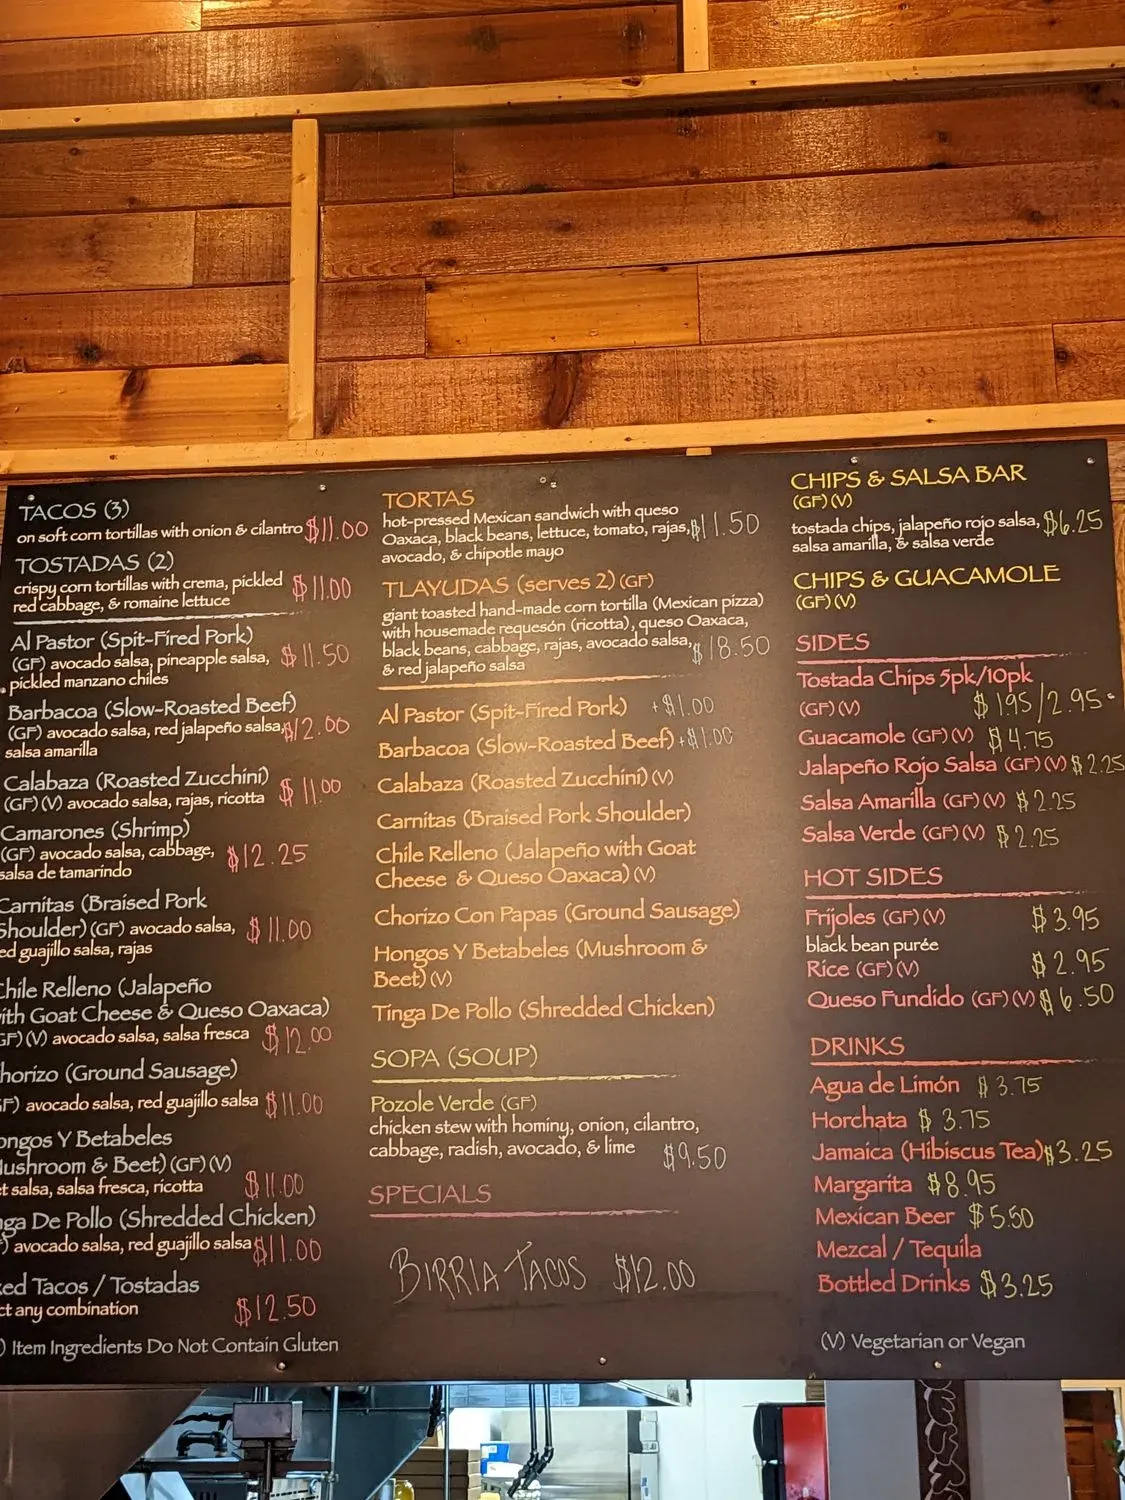 TACOS (3)
on soft corn tortillas with onion & cilantro $11.00
TOSTADAS (2)
crispy corn tortillas with crema, pickled
red cabbage, & romaine lettuce $11.00
Al Pastor (Spit-Fired Pork)
(GF) avocado salsa, pineapple salsa, $11.50
pickled manzano chiles
Barbacoa (Slow-Roasted Beef)
(GF) avocado salsa, red jalapeño salsa, $12.00
salsa amarilla
Calabaza (Roasted Zucchini)
(GF) (V) avocado salsa, rajas, ricotta $11.00
Camarones (Shrimp)
(GF) avocado salsa, cabbage, $12.25
salsa de tamarindo
Carnitas (Braised Pork
Shoulder) (GF) avocado salsa, $11.00
ed guajillo salsa, rajas
Chile Relleno (Jalapeño
ith Goat Cheese & Queso Oaxaca)
GF) (V) avocado salsa, salsa fresca $12.00
horizo (Ground Sausage)
F) avocado salsa, red guajillo salsa $11.00
ongos Y Betabeles
Mushroom & Beet) (GF) (V)
t salsa, salsa fresca, ricotta $11.00
nga De Pollo (Shredded Chicken)
) avocado salsa, red guajillo salsa $11.00
ed Tacos / Tostadas
ct any combination $12.50
) Item Ingredients Do Not Contain Gluten
TORTAS
hot-pressed Mexican sandwich with queso
Oaxaca, black beans, lettuce, tomato, rajas, $11.50
avocado, & chipotle mayo
TLAYUDAS (serves 2) (GF)
giant toasted hand-made corn tortilla (Mexican pizza)
with housemade requesón (ricotta), queso Oaxaca,
black beans, cabbage, rajas, avocado salsa, $18.50
& red jalapeño salsa
Al Pastor (Spit-Fired Pork) +$1.00
Barbacoa (Slow-Roasted Beef) +$1.00
Calabaza (Roasted Zucchini) (V)
Carnitas (Braised Pork Shoulder)
Chile Relleno (Jalapeño with Goat
Cheese & Queso Oaxaca) (V)
Chorizo Con Papas (Ground Sausage)
Hongos Y Betabeles (Mushroom &
Beet) (V)
Tinga De Pollo (Shredded Chicken)
SOPA (SOUP)
Pozole Verde (GF)
chicken stew with hominy, onion, cilantro,
cabbage, radish, avocado, & lime $9.50
SPECIALS
BIRRIA TACOS $12.00
CHIPS & SALSA BAR
(GF) (V)
tostada chips, jalapeño rojo salsa, $6.25
salsa amarilla, & salsa verde
CHIPS & GUACAMOLE
(GF) (V)
SIDES
Tostada Chips 5pk/10pk
(GF) (V) $1.95/2.95
Guacamole (GF) (V) $4.75
Jalapeño Rojo Salsa (GF) (V) $2.25
Salsa Amarilla (GF) (V) $2.25
Salsa Verde (GF) (V) $2.25
HOT SIDES
Frijoles (GF) (V) $3.95
black bean purée
Rice (GF) (V) $2.95
Queso Fundido (GF) (V) $6.50
DRINKS
Agua de Limón $3.75
Horchata $3.75
Jamaica (Hibiscus Tea) $3.25
Margarita $8.95
Mexican Beer $5.50
Mezcal / Tequila
Bottled Drinks $3.25
(V) Vegetarian or Vegan